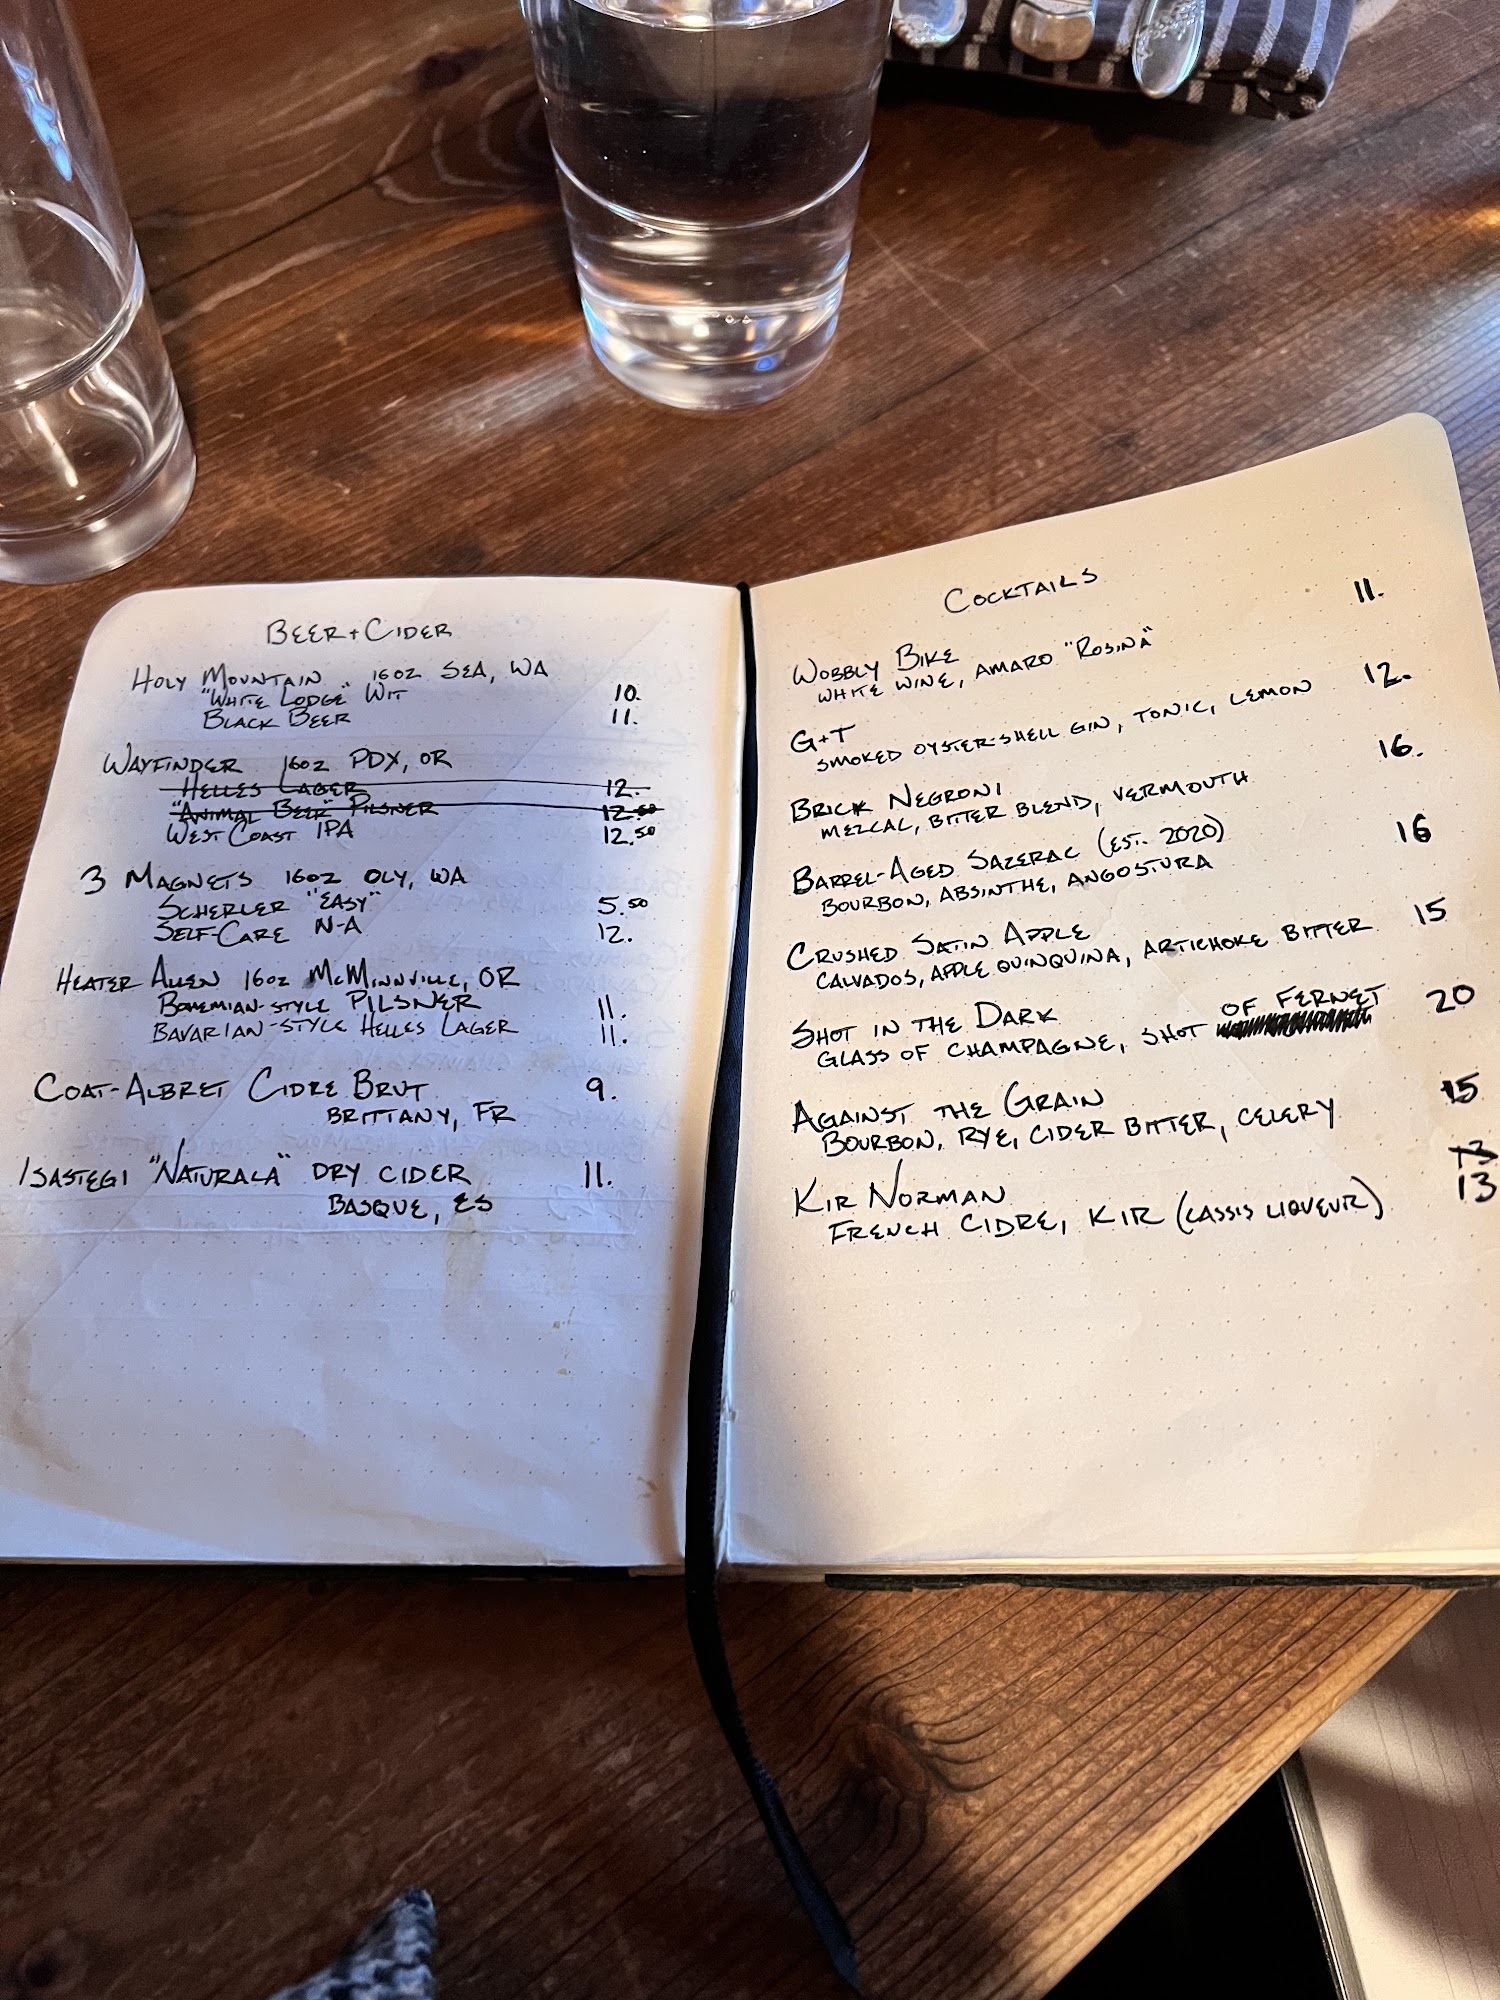 BEER + CIDER
HOLY MOUNTAIN 16OZ SEA, WA
"WHITE LODGE" WIT 10.
BLACK BEER 11.
WAYFINDER 16OZ PDX, OR
HELLES LAGER 12.
"ANIMAL BEER" PILSNER 12.50
WEST COAST IPA 12.50
3 MAGNETS 16OZ OLY, WA
SCHERLER "EASY" 5.50
SELF-CARE N-A 12.
HEATER ALLEN 16OZ MCMINNVILLE, OR
BOHEMIAN-STYLE PILSNER 11.
BAVARIAN-STYLE HELLES LAGER 11.
COAT-ALBRET CIDRE BRUT 9.
BRITTANY, FR
ISASTEGI "NATURALA" DRY CIDER 11.
BASQUE, ES
COCKTAILS
WOBBLY BIKE 11.
WHITE WINE, AMARO "ROSINA"
G+T 12.
SMOKED OYSTER-SHELL GIN, TONIC, LEMON
BRICK NEGRONI 16.
MEZCAL, BITTER BLEND, VERMOUTH
BARREL-AGED SAZERAC (EST. 2020) 16
BOURBON, ABSINTHE, ANGOSTURA
CRUSHED SATIN APPLE 15
CALVADOS, APPLE QUINQUINA, ARTICHOKE BITTER
SHOT IN THE DARK 20
GLASS OF CHAMPAGNE, SHOT OF FERNET
AGAINST THE GRAIN 15
BOURBON, RYE, CIDER BITTER, CELERY
13
KIR NORMAN 13
FRENCH CIDRE, KIR (CASSIS LIQUEUR)